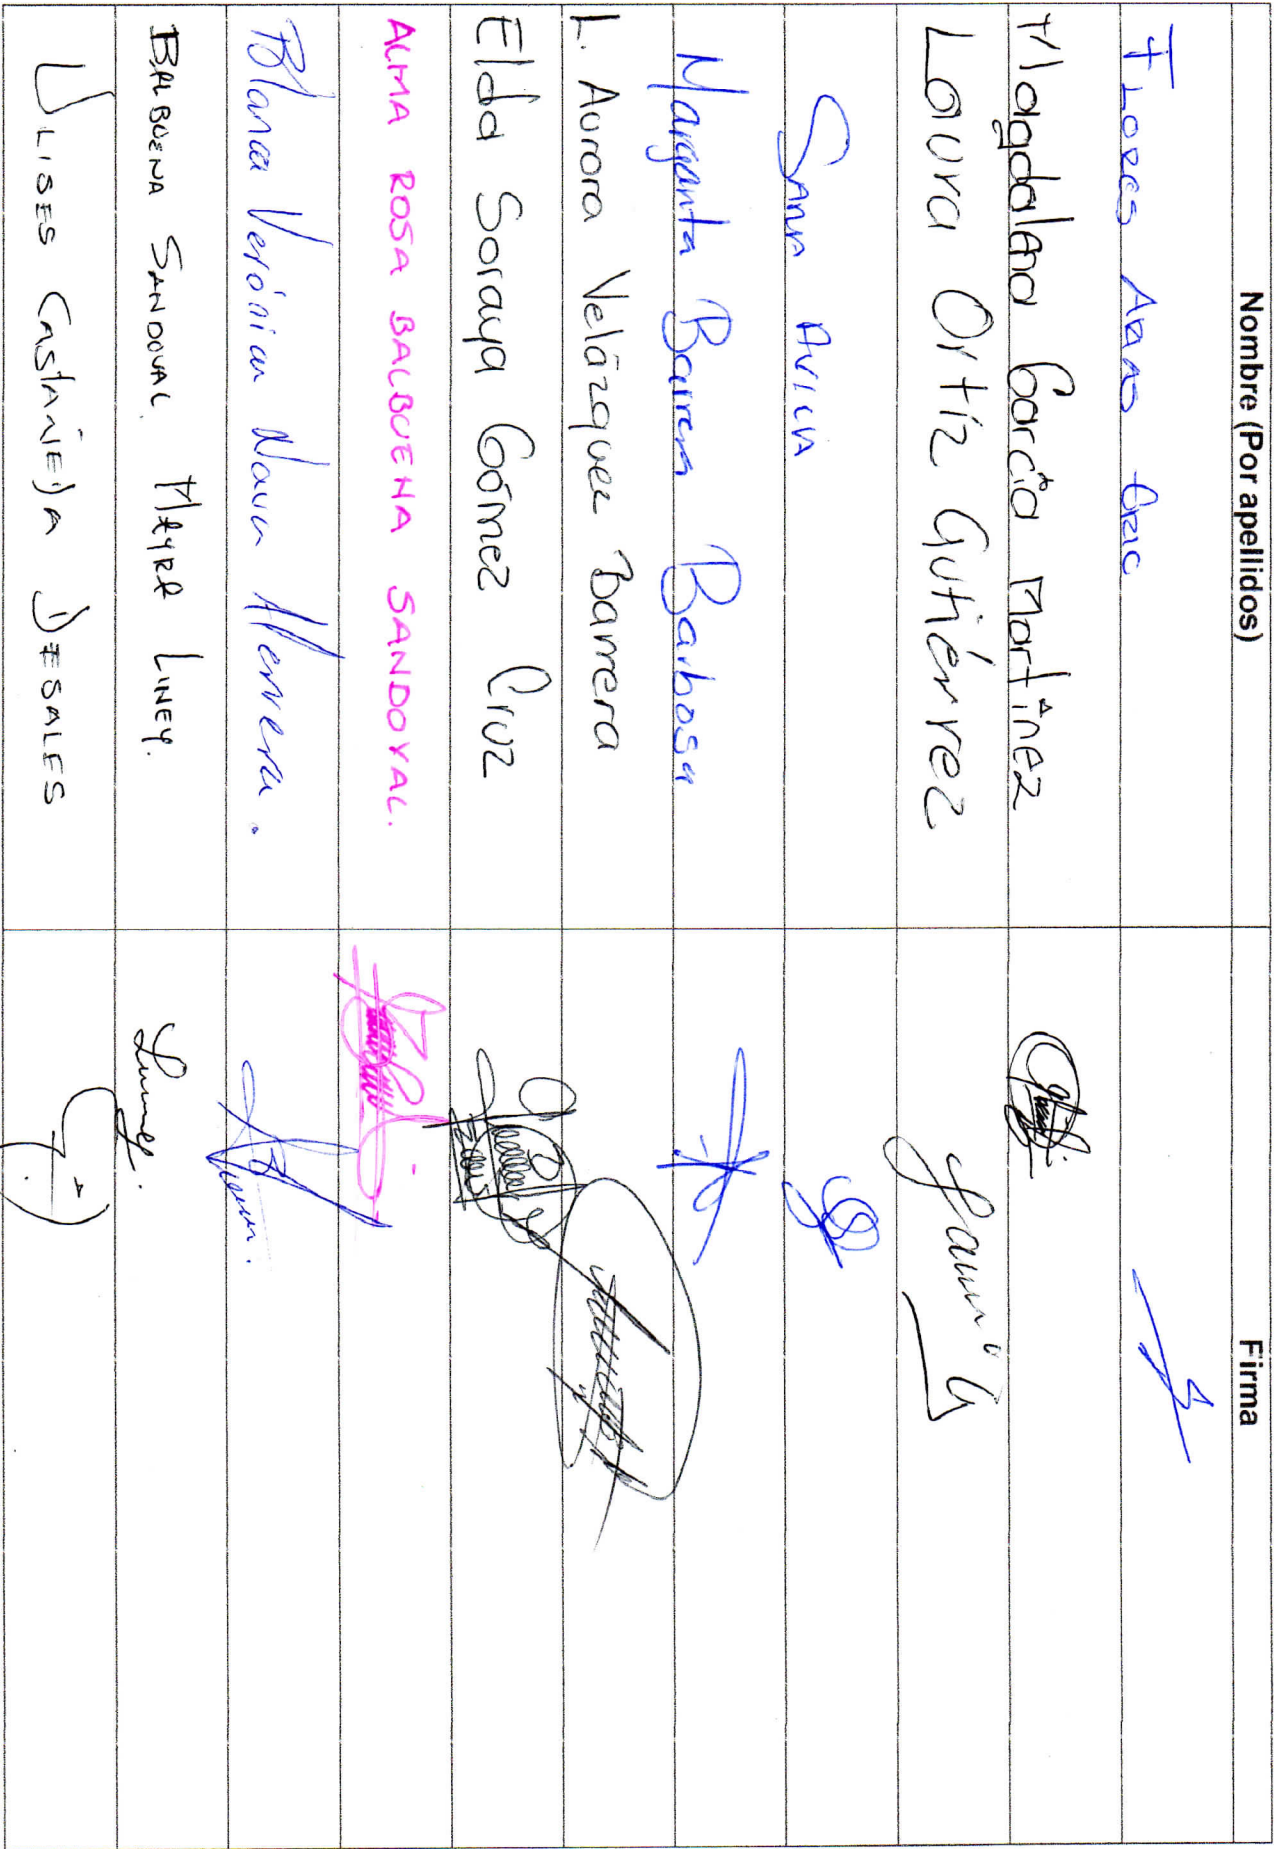 Nombre (Por apellidos) Firma
Flores Arano Eric
Magdalena García Martínez
Laura Ortíz Gutiérrez
Sara Avila
Margarita Barrera Barbosa
L. Aurora Velázquez Barrera
Elda Soraya Gómez Cruz
ALMA ROSA BALBUENA SANDOVAL.
Blanca Verónica Nava Herrera.
BALBUENA SANDOVAL MAYRA LINEY.
ULISES CASTAÑEDA DESALES